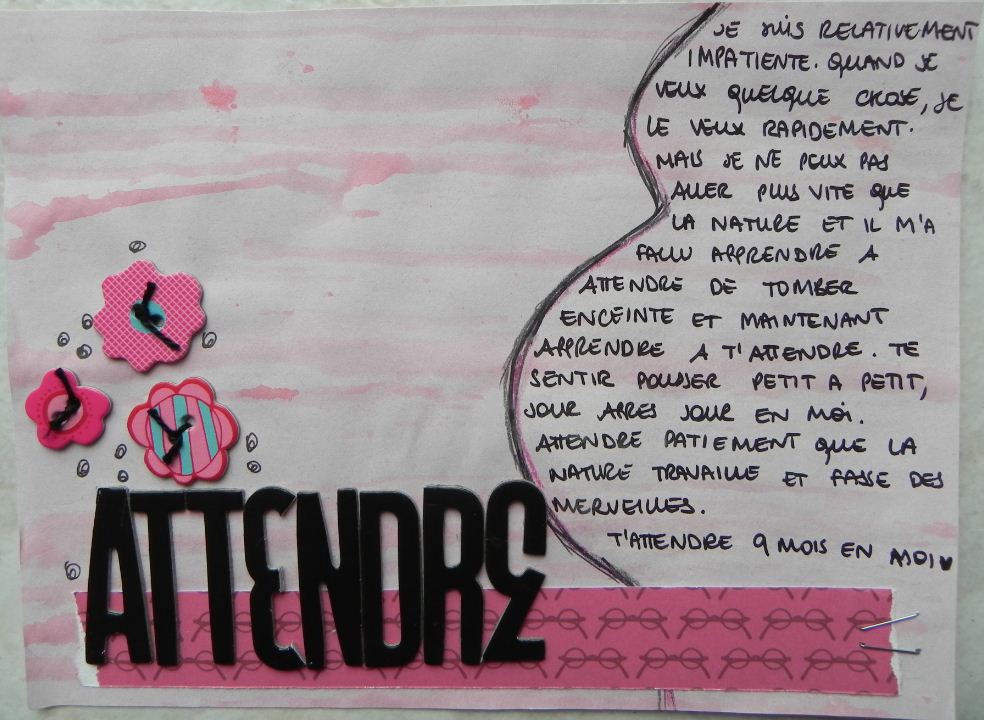 JE SUIS RELATIVEMENT
IMPATIENTE. QUAND JE
VEUX QUELQUE CHOSE, JE
LE VEUX RAPIDEMENT.
MAIS JE NE PEUX PAS
ALLER PLUS VITE QUE
LA NATURE ET IL M'A
FALLU APPRENDRE A
ATTENDRE DE TOMBER
ENCEINTE ET MAINTENANT
APPRENDRE A T'ATTENDRE. TE
SENTIR POUSSER PETIT A PETIT,
JOUR APRES JOUR EN MOI.
ATTENDRE PATIEMENT QUE LA
NATURE TRAVAILLE ET FASSE DES
MERVEILLES.
T'ATTENDRE 9 MOIS EN MOI ♥
ATTENDRE